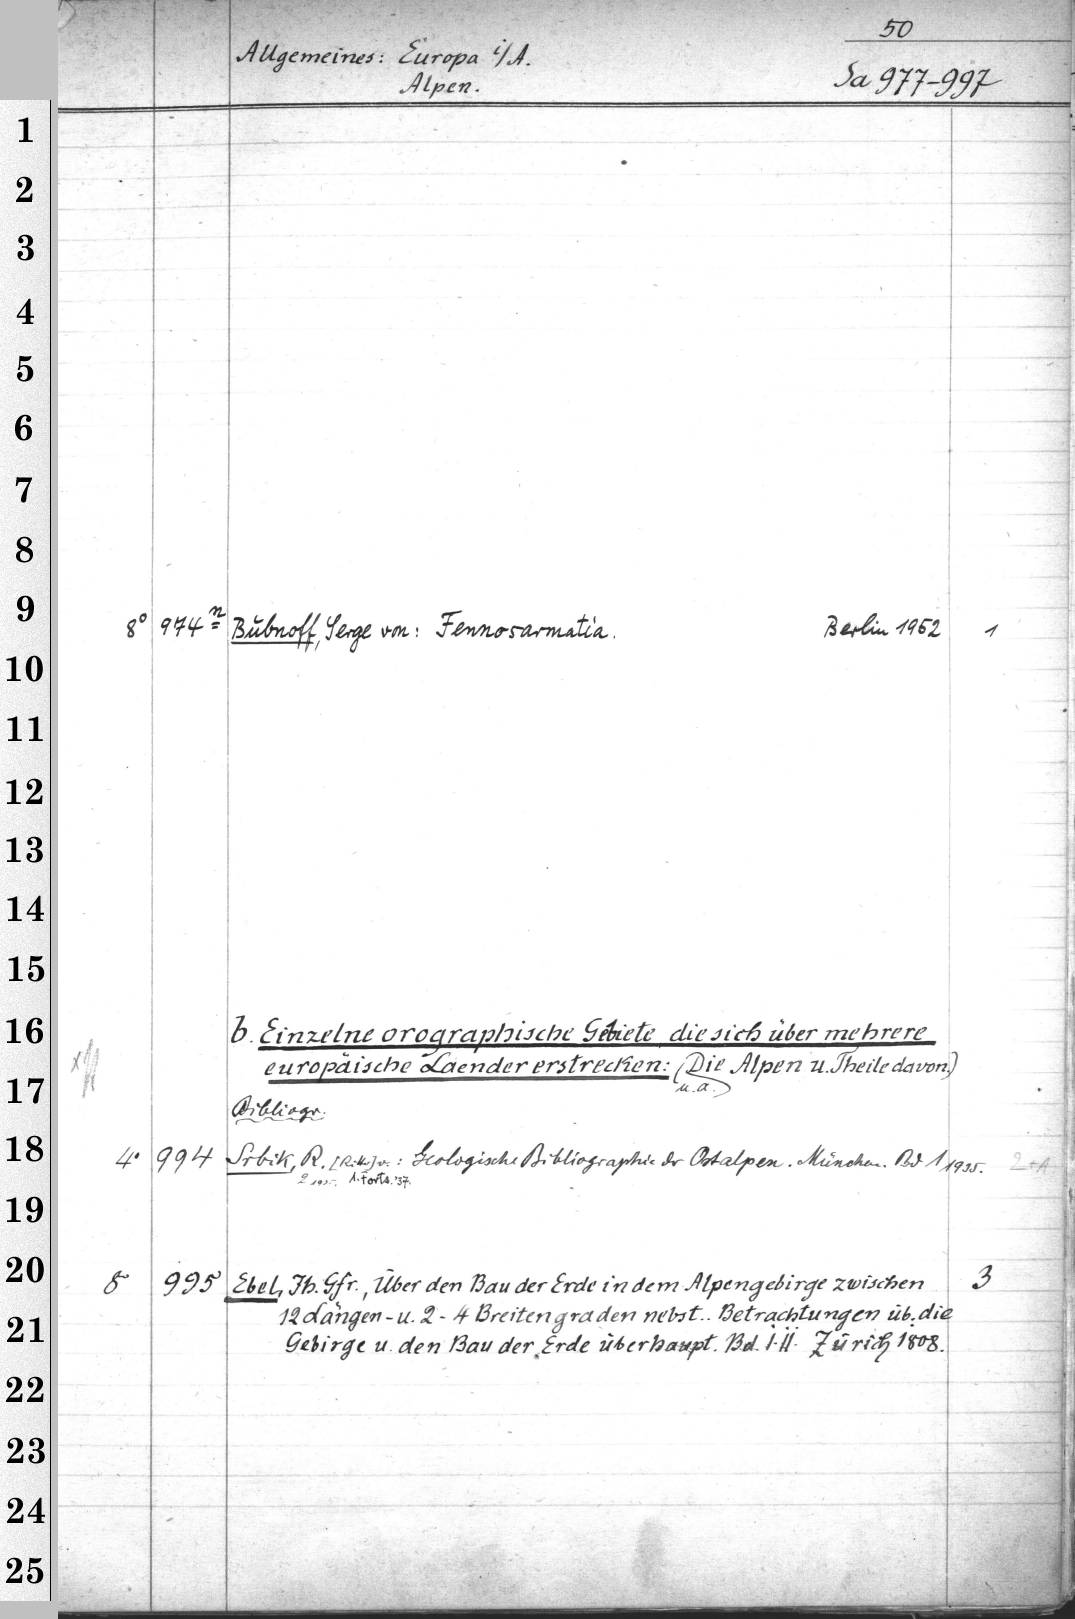 50
Allgemeines: Europa i/A.
Alpen.
Sa 977-997
1
2
3
4
5
6
7
8
9
8° 974 n Bubnoff, Serge von: Fennosarmatia. Berlin 1952 1
10
11
12
13
14
15
16
b. Einzelne orographische Gebiete, die sich über mehrere
europäische Laender erstrecken: (Die Alpen u. Theile davon.)
u. a.)
17
Bibliogr.
18
4° 994 Srbik, R. [Ritter] v.: Geologische Bibliographie der Ostalpen. München. Bd 1 1935.
2 1935. 1. Forts. '37.
19
20
8° 995 Ebel, Jh. Gfr., Über den Bau der Erde in dem Alpengebirge zwischen 3
12 Längen- u. 2-4 Breitengraden nebst.. Betrachtungen üb. die
21
Gebirge u. den Bau der Erde überhaupt. Bd. I-II. Zürich 1808.
22
23
24
25